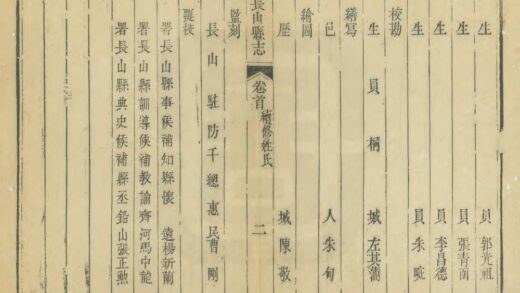 生員郭光
生員張青
生員李昌德
生員朱
校勘
生員桐城左其
繕寫
邑人朱甸
繪圖
歷城陳敬
長山縣志 卷首 續修姓氏 二
監刻
長山駐防千總惠民曹剛
覆校
署長山縣事候補知縣懷遠楊新蘭
署長山縣訓導候補教諭齊河馬中龍
署長山縣典史候補縣丞鉛山張正勲